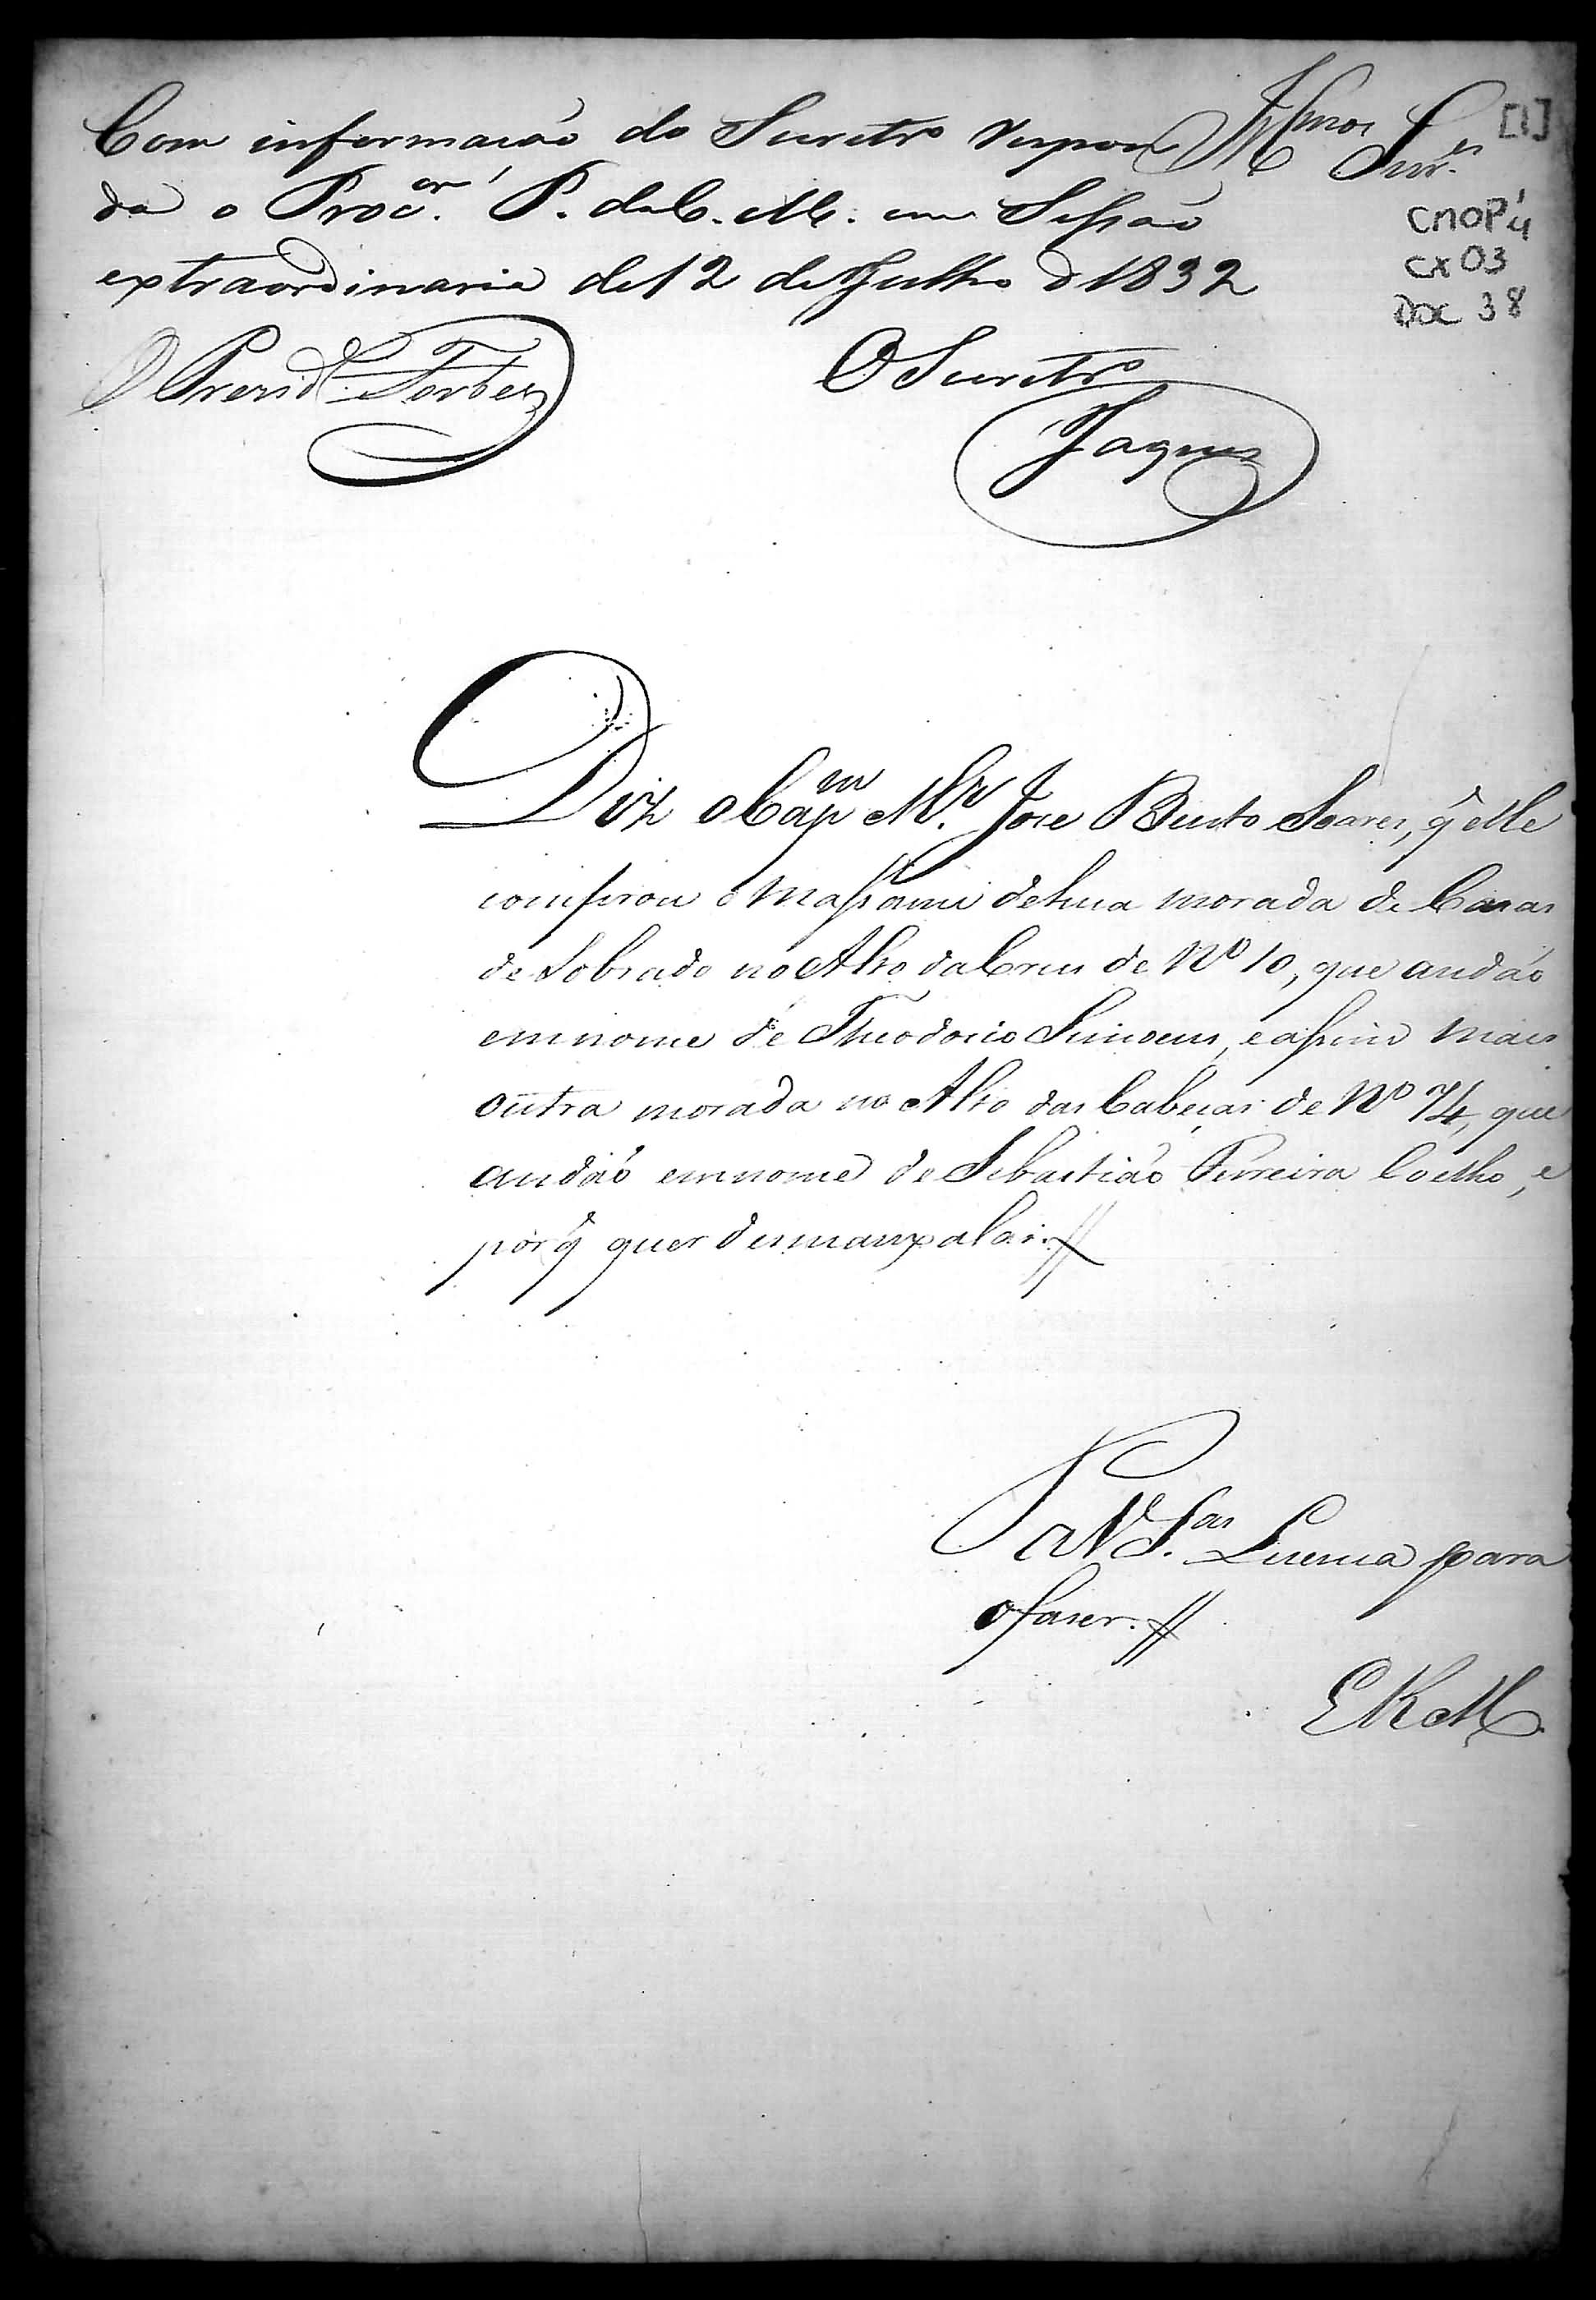 Com informação do Secretrº respon
da o Procor. P. da C. M. em Sessão
extraordinaria de 12 de Julho d 1832
Illmos Snres
[1]
CMOP
cx 03
DOC 38
O Prezide Forbes
O Secretrº
Jaques
Diz o Capm Mr. Joze Bento Soares, q̃ elle
comprou o Massame de hua morada de Cazas
de Sobrado no Alto da Crus de Nº 10, que andão
em nome de Theodozio Simoens, e assim mais
outra morada no Alto das Cabeças de Nº 74, que
andão em nome de Sebastião Ferreira Coelho, e
por q̃ quer demanxalas.//
P
a V Sas. Licença para
o faser.//
E R M